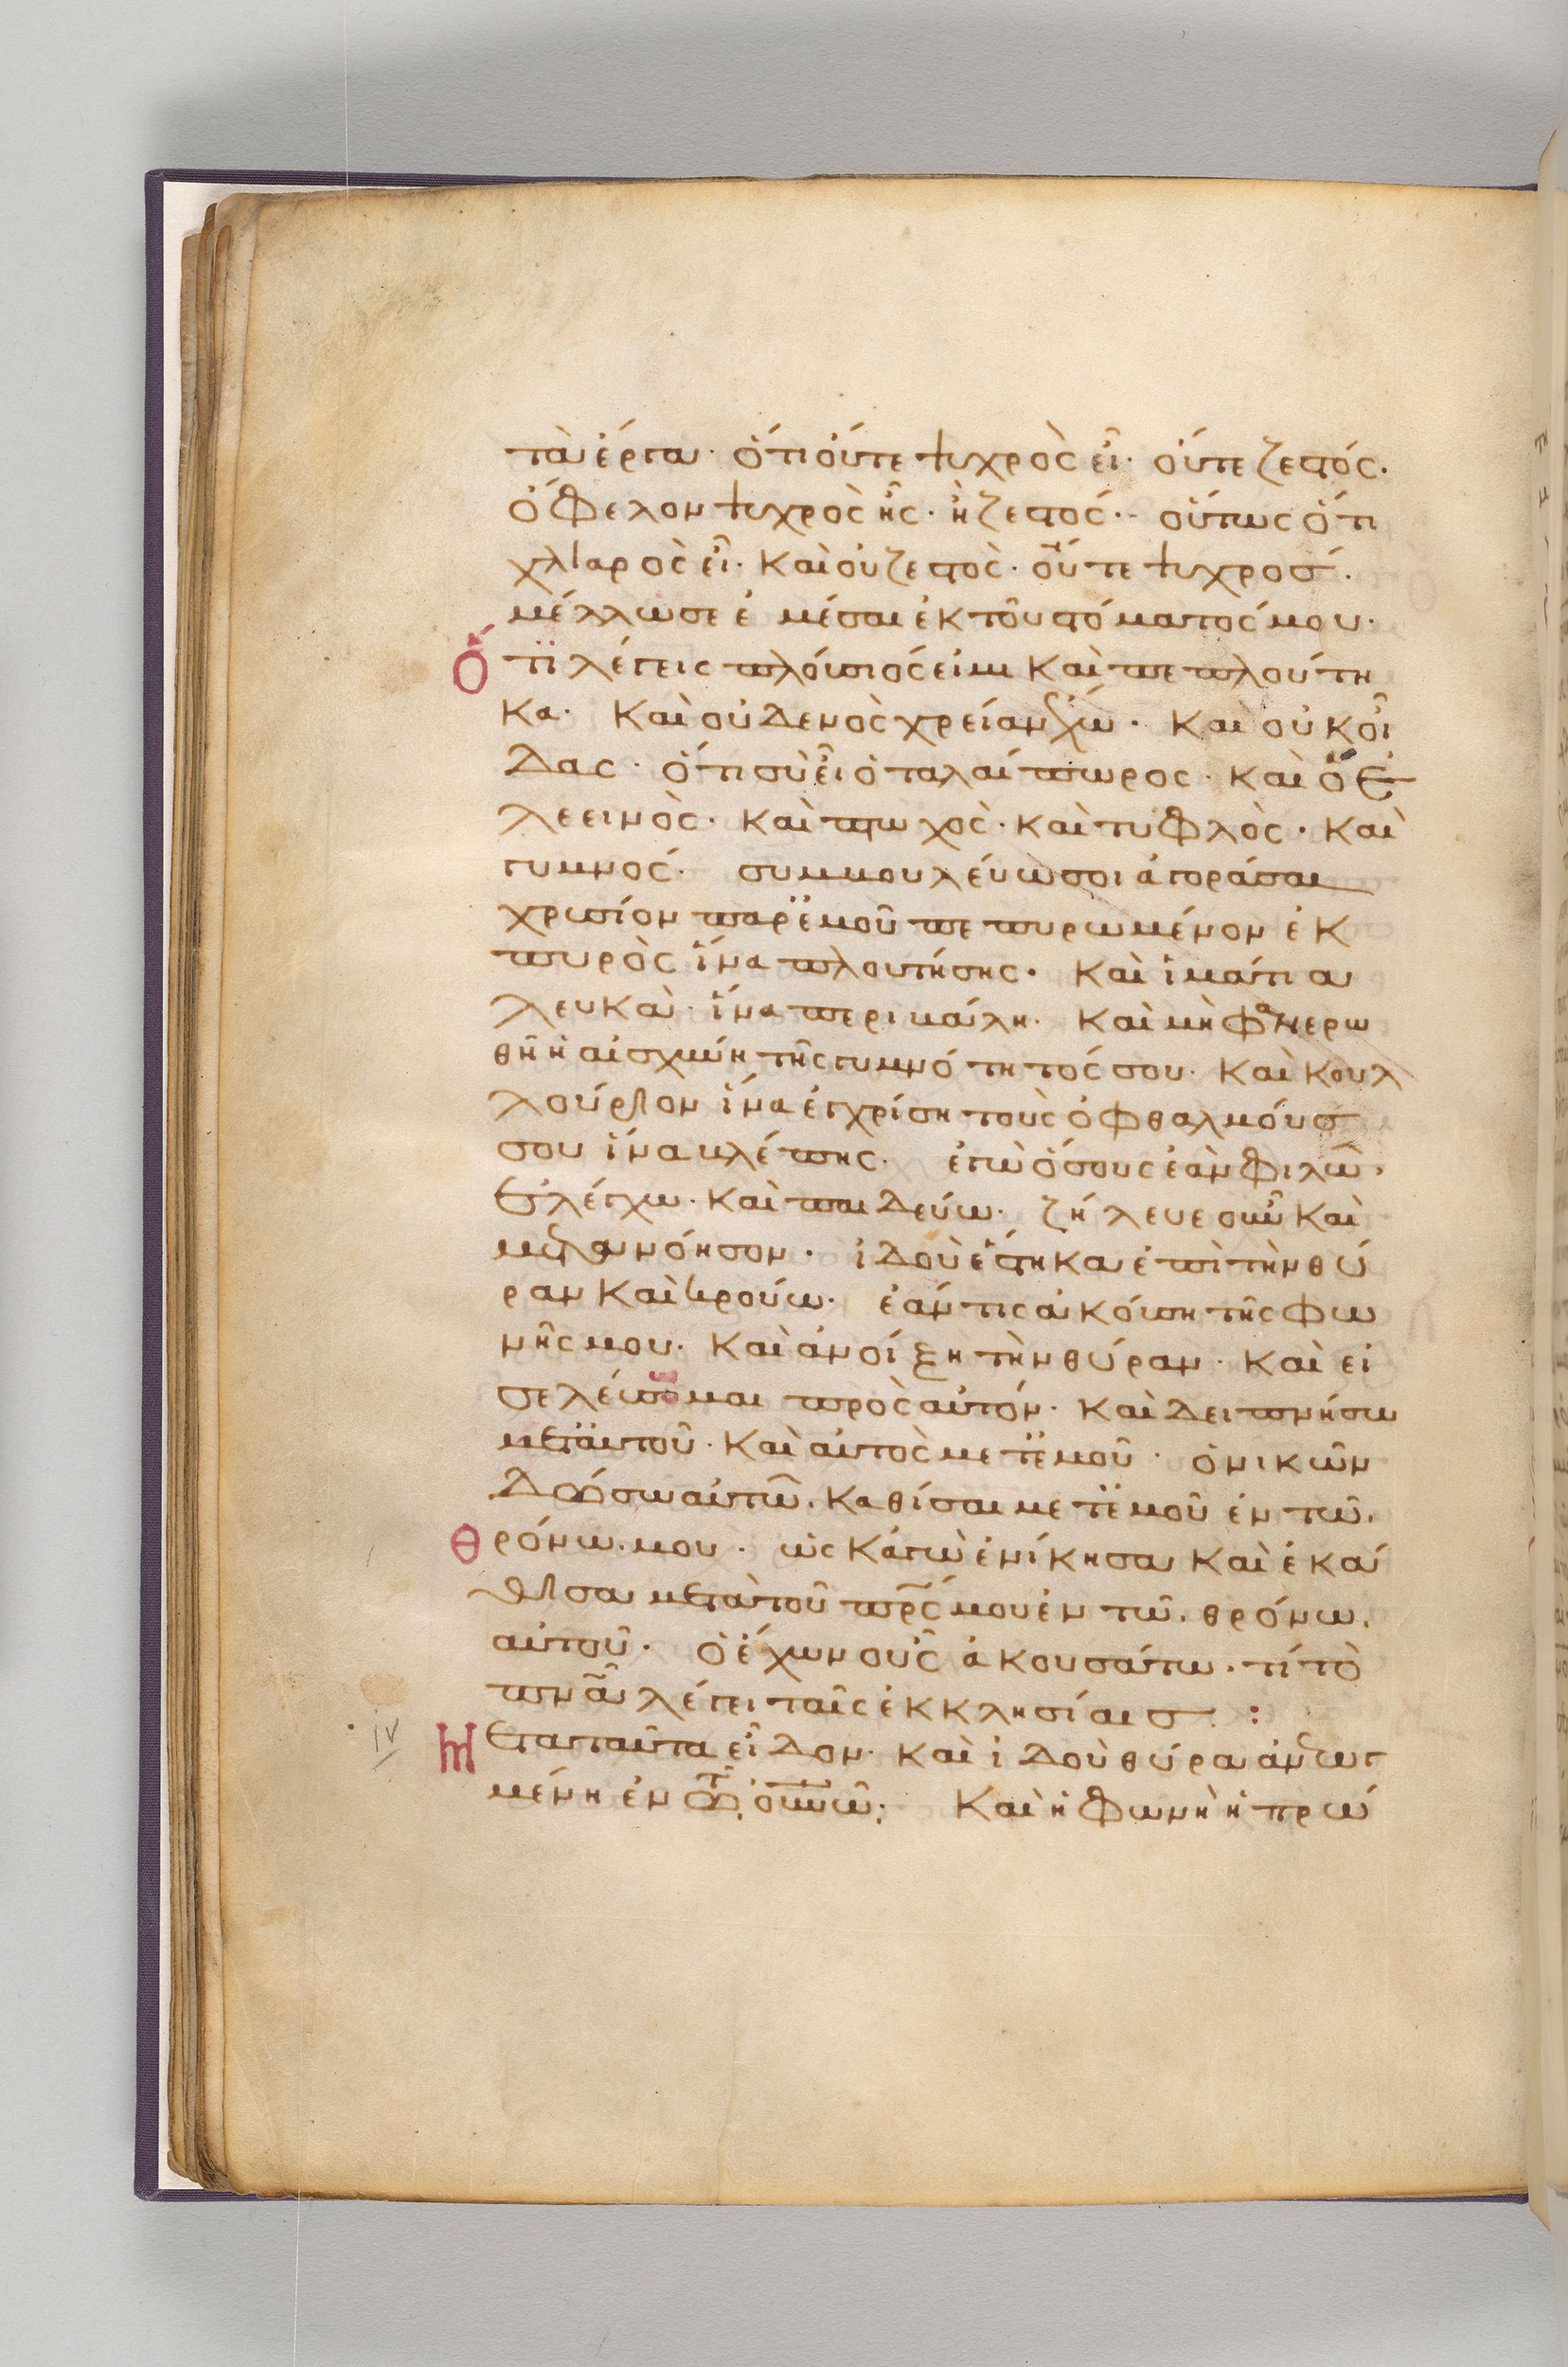 τὰ ἔργα· ὅτι οὔτε ψυχρὸς εἶ· οὔτε ζεστός·
ὄφελον ψυχρὸς ῆς· ἢ ζεστός·- οὕτως ὅτι
χλιαρὸς εἶ· καὶ οὐ ζεστὸς· οὔτε ψυχρόσ·
μέλλω σε ἐμέσαι ἐκ τοῦ στόματός μου·
Ὅτϊ λέγεις πλόυσιός εἰμι καὶ πεπλούτη
κα· καὶ οὐδενὸς χρείαν ἔχω· καὶ οὐκ οἶ
δας· ὅτι σὺ εἶ ὁ ταλαίπωρος· καὶ ὁ ἐ
λεεινὸς· καὶ πτωχὸς· καὶ τυφλὸς· καὶ
γυμνός· συμβουλέυω σοι ἀγοράσαι
χρυσίον παρ ἐμοῦ πεπυρωμένον ἐκ
πυρὸς ἵνα πλουτήσης· καὶ ἱμάτια
λευκὰ· ἵνα περιβάλη· καὶ μὴ φανερω
θῆ ἡ αἰσχύνη τῆς γυμνότητός σου· καὶ κουλ
λούριον ἵνα ἐγχρίση τοὺς ὀφθαλμόυσ
σου ἵνα βλέπης· ἐγὼ ὅσους ἐὰν φιλῶ·
ἐλέγχω· καὶ παιδεύω· ζήλευε οὖν καὶ
μετανόησον· ἰδοὺ ἕστηκα ἐπὶ τὴν θύ
ραν καὶ κρούω· ἐάν τις ἀκόυση τῆς φω
νῆς μου· καὶ ἀνοίξη τὴν θύραν· καὶ εἰ
σελέυσομαι πρὸς αὐτόν· καὶ δειπνήσω
μετ αὐτοῦ· καὶ αὐτὸς μετ ἐμοῦ· ὁ νικῶν
δώσω αὐτῶ· καθίσαι μετ ἐμοῦ ἐν τῶ·
θρόνω· μου· ὡς κἀγὼ ἐνίκησα καὶ ἐκά
θισα μετὰ τοῦ πρς μου ἐν τῶ· θρόνω·
αὐτοῦ· ὁ ἔχων οὖς ἀκουσάτω· τί τὸ
πνα λέγει ταῖς ἐκκλησίαισ :
Μετὰ ταῦτα εἶδον· καὶ ἰδοὺ θύρα ἀνεωγ
iv
μένη ἐν τῶ· οὐνῶ· καὶ ἡ φωνὴ ἡ πρώ